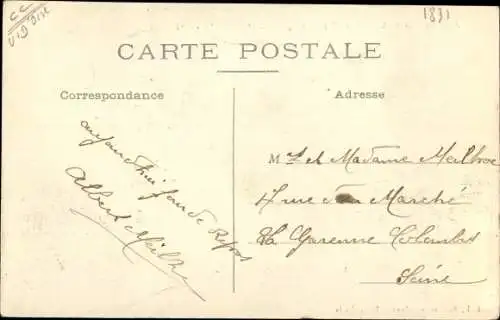 1891
CARTE POSTALE
Correspondance
Adresse
aujourd'hui jour de Repos
Albert
Mr et Madame
4 rue du Marché
La Garenne Colombes
Seine